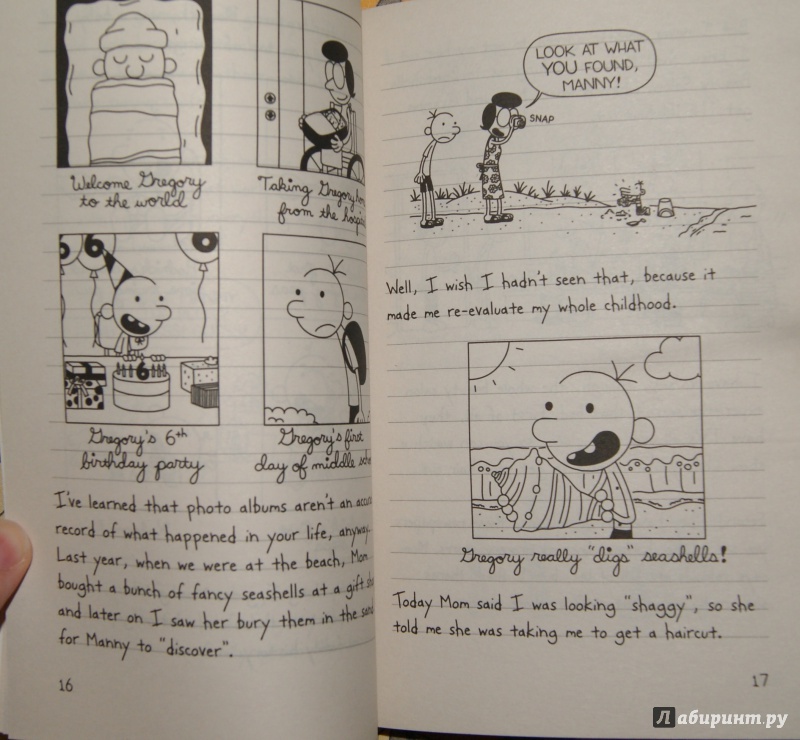 Welcome Gregory
to the world
Taking Gregory
from the
6
6
Gregory's 6th
birthday party
Gregory's first
day of middle
I've learned that photo albums aren't an
record of what happened in your life, anyway.
Last year, when we were at the beach, Mom
bought a bunch of fancy seashells at a gift
and later on I saw her bury them in the sand
for Manny to "discover".
16
LOOK AT WHAT
YOU FOUND,
MANNY!
SNAP
Well, I wish I hadn't seen that, because it
made me re-evaluate my whole childhood.
Gregory really "digs" seashells!
Today Mom said I was looking "shaggy", so she
told me she was taking me to get a haircut.
17
Лабиринт.ру